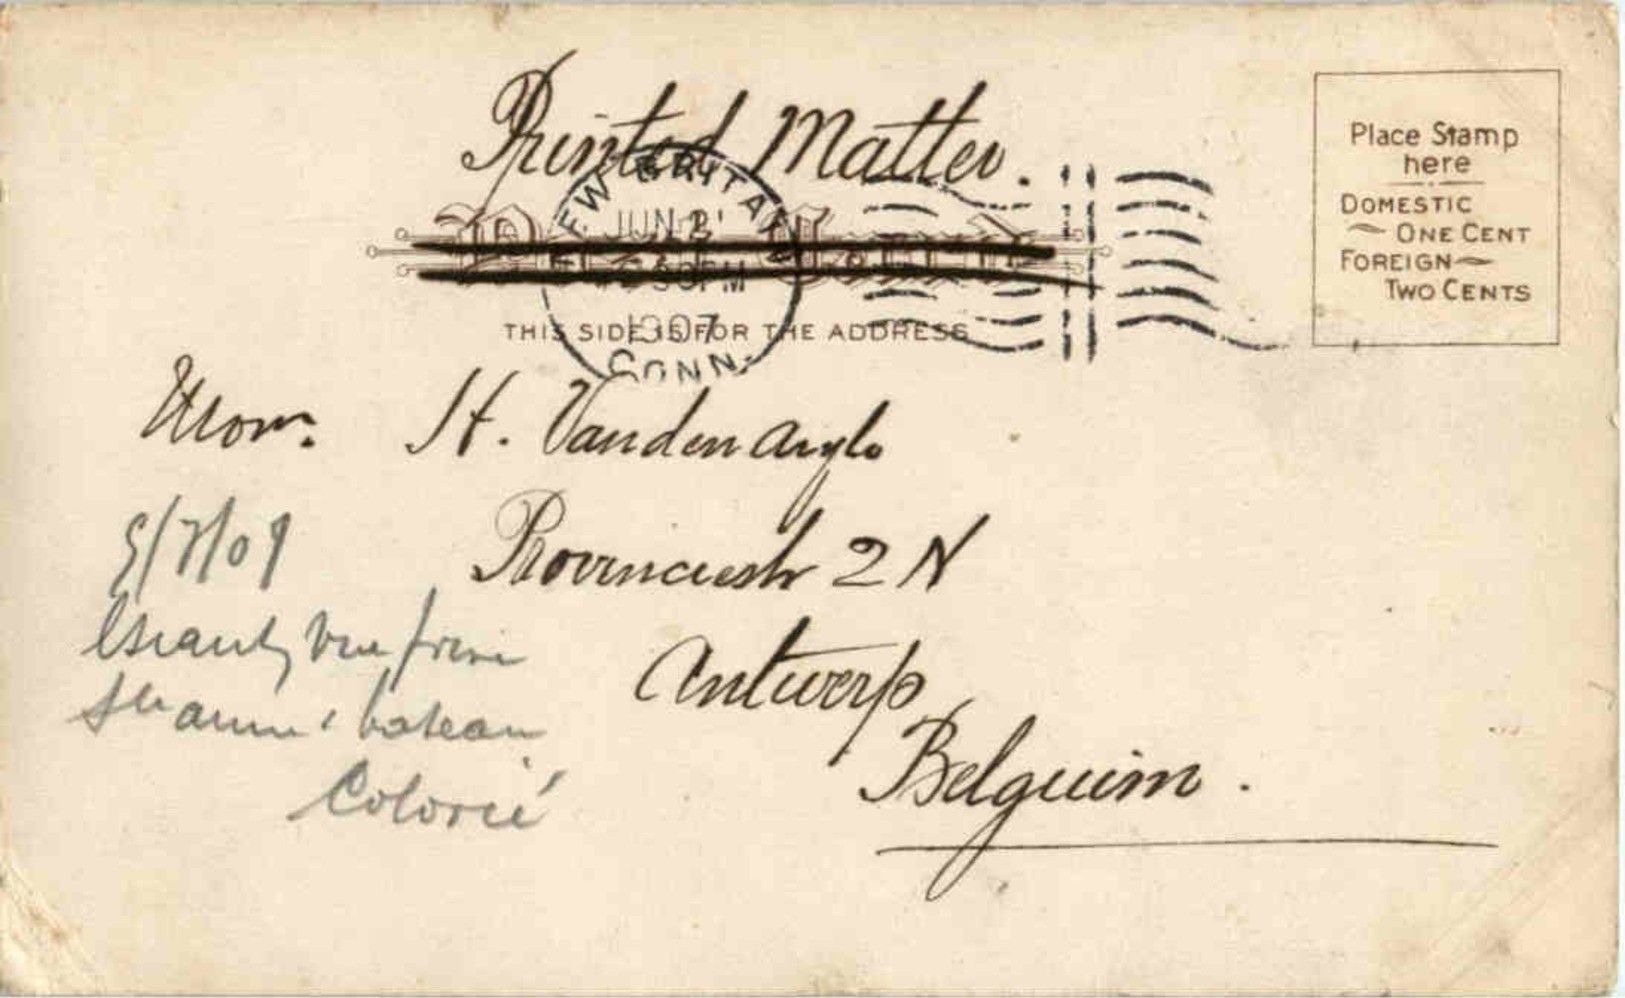 Printed Matter.
NEW BRITAIN
JUN 2
30PM
1907
CONN.
THIS SIDE IS FOR THE ADDRESS
Place Stamp
here
DOMESTIC
ONE CENT
FOREIGN
TWO CENTS
Mon. H. Vanden
Provinciestr 2 N
Antwerp
Belguim.
bateau
Colorié